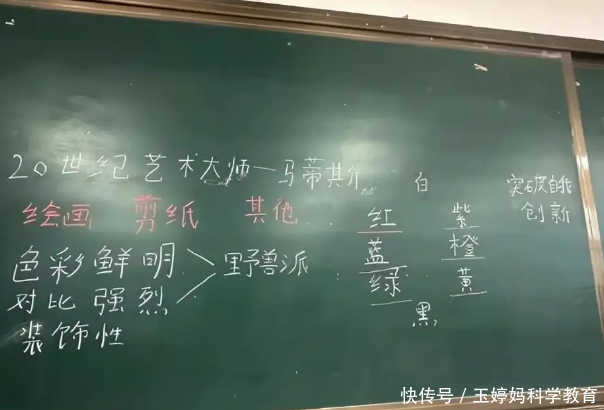 20世纪艺术大师—马蒂斯
绘画 剪纸 其他
色彩鲜明
对比强烈
野兽派
装饰性
白
红 紫
蓝 橙
绿 黄
黑
突破自我
创新
快传号/玉婷妈科学教育